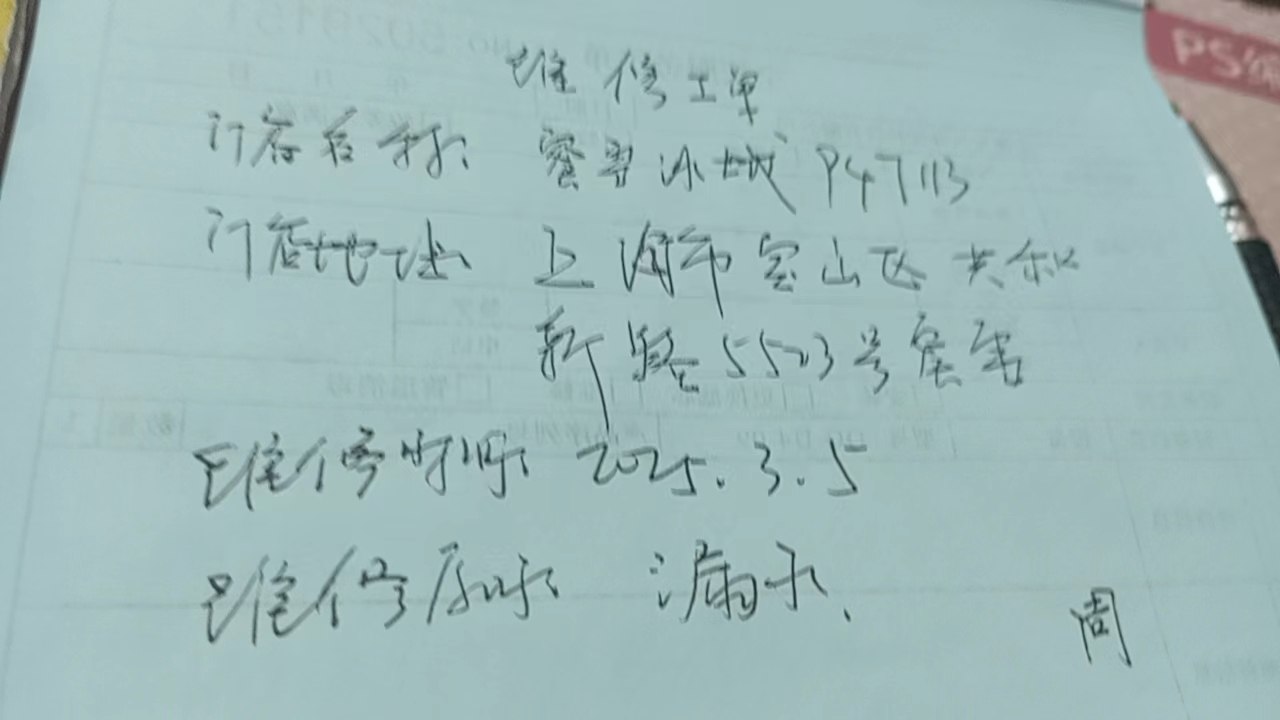 维修工单
门店名称: 蜜雪冰城 P47113
门店地址: 上海市宝山区共和
新路5523号蜜雪
维修时间: 2025.3.5
维修原因: 漏水.
周
PS